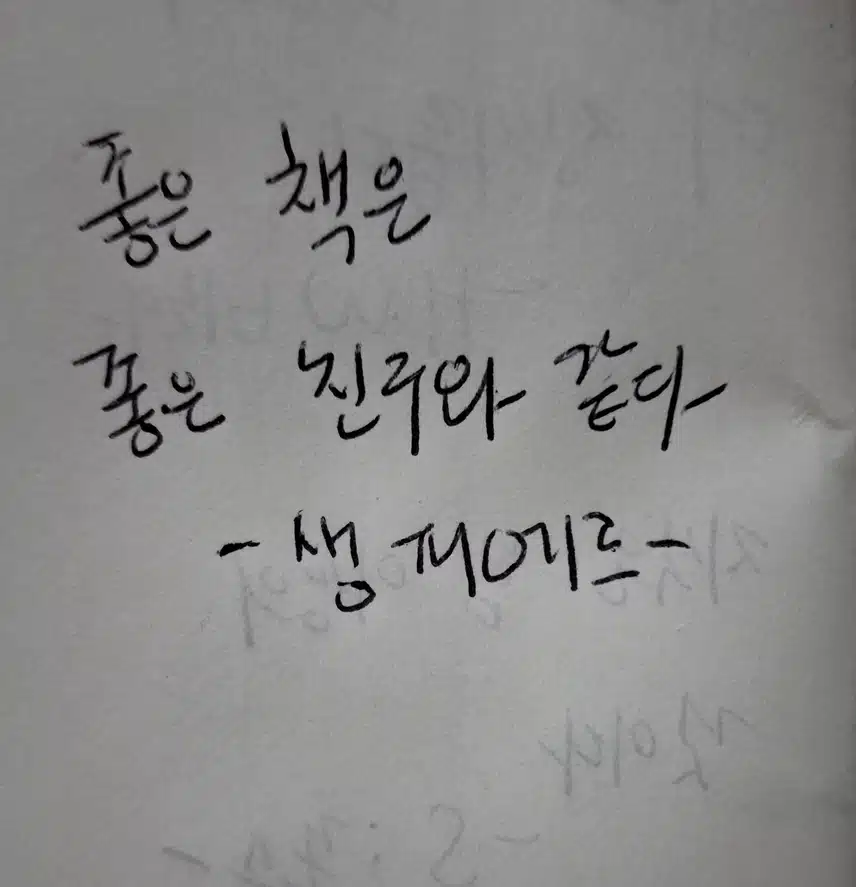 좋은 책은
좋은 친구와 같다
- 생 피에르 -